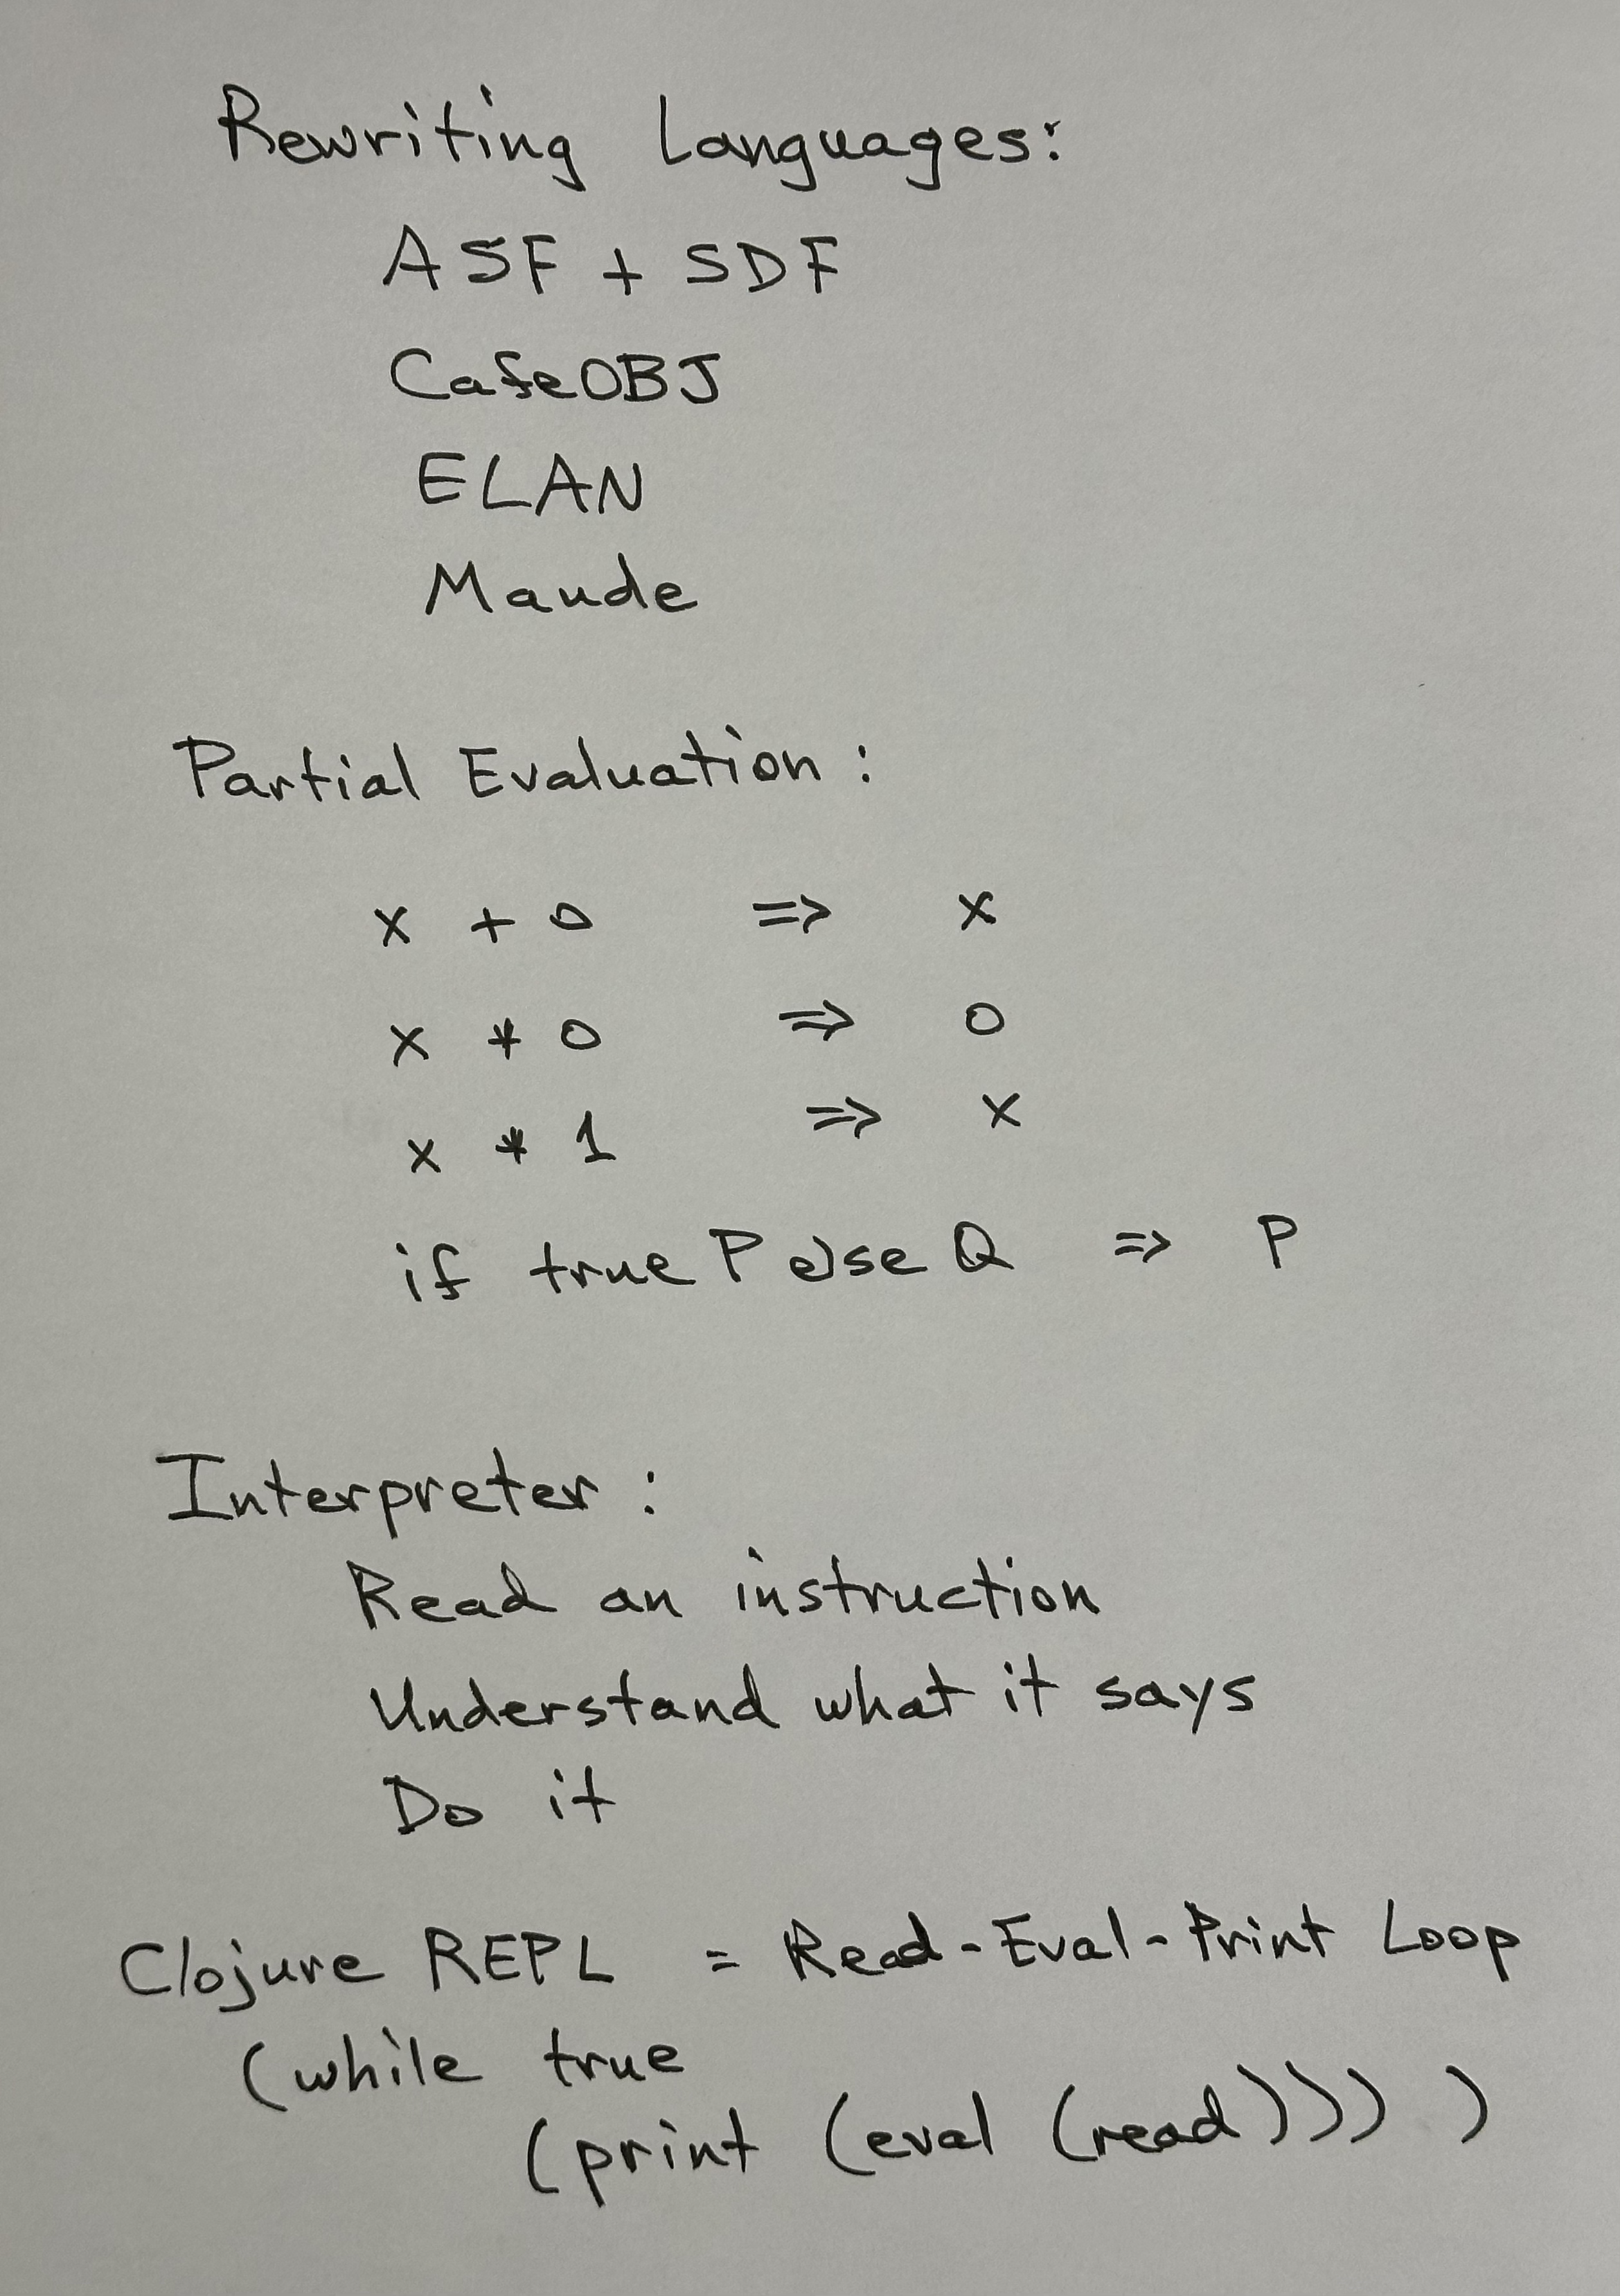 Rewriting Languages:
ASF + SDF
CafeOBJ
ELAN
Maude
Partial Evaluation :
x + 0 => x
x * 0 => 0
x * 1 => x
if true P else Q => P
Interpreter :
Read an instruction
Understand what it says
Do it
Clojure REPL = Read-Eval-Print Loop
(while true
(print (eval (read))) )